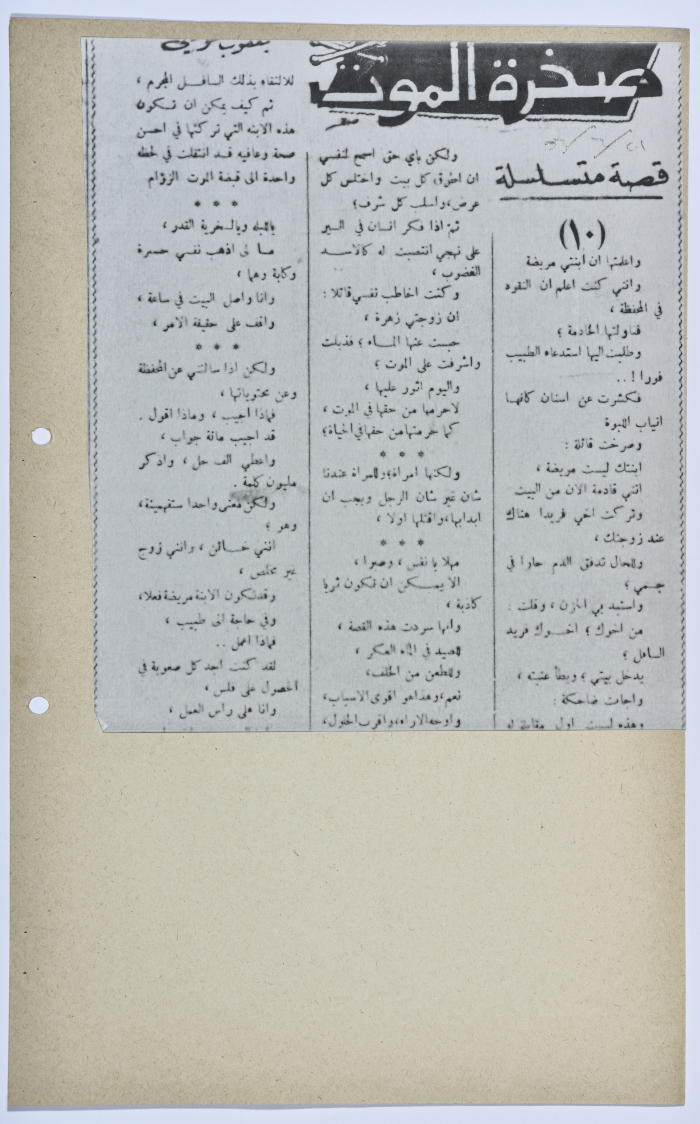 صخرة الموت
قصة متسلسلة
(١٠)
واعلمتها ان ابنتي مريضة
وانني كنت اعلم ان النقود
في المحفظة ،
فناولتها الخادمة ؛
وطلبت اليها استدعاء الطبيب
فورا ! ..
فكشرت عن اسنان كانها
انياب اللبوة
وصرخت قائلة :
ابنتك ليست مريضة ،
انني قادمة الان من البيت
وتركت اخي فريدا هناك
عند زوجتك ،
وللحال تدفق الدم حارا في
جسمي ؛
واستبد بي الحزن ، وقلت :
من اخوك ؟ اخوك فريد
السافل ؟
يدخل بيتي ؛ ويطأ عتبته ،
واجابت ضاحكة :
وهذه ليست اول مقابلة له
ولكن باي حق اسمح لنفسي
ان اطرق كل بيت واختلس كل
عرض ، واسلب كل شرف ؛
ثم اذا فكر انسان في السير
على نهجي انتصبت له كالاسد
الغضوب ،
وكنت اخاطب نفسي قائلا :
ان زوجتي زهرة ،
حبست عنها الماء ؛ فذبلت
واشرفت على الموت ؛
واليوم اثور عليها ،
لاحرمها من حقها في الموت ،
كما حرمتها من حقها في الحياة ؛
* * *
ولكنها امراة ؛ وللمراة عندنا
شان غير شان الرجل ويجب ان
ابدا بها ، واقتلها اولا ،
* * *
مهلا يا نفس ، وصبرا ،
الا يمكن ان تكون ثريا
كاذبة ،
وانها سردت هذه القصة ،
للصيد في الماء العكر ،
وللطعن من الخلف ،
نعم ، وهذا هو اقوى الاسباب ،
واوجه الاراء ، واقرب الحلول ،
يعقوب
للالتقاء بذلك السافل المجرم ،
ثم كيف يمكن ان تكون
هذه الابنه التي تركتها في احسن
صحة وعافيه قد انتقلت في لحظه
واحدة الى قبضة الموت الزؤام
* * *
يالله ويالسخرية القدر ،
ما لي اذهب نفسي حسرة
وكابة وهما ،
وانا واصل البيت في ساعة ،
واقف على حقيقة الامر ،
* * *
ولكن اذا سالتني عن المحفظة
وعن محتوياتها ،
فماذا اجيب ، وماذا اقول .
قد اجيب مائة جواب ،
واعطي الف حل ، واذكر
مليون كلمة .
ولكن معنى واحدا ستفهمينه ،
وهو ؛
انني خائن ، وانني زوج
غير مخلص ،
وقد تكون الابنة مريضة فعلا ،
وفي حاجة الى طبيب ،
فماذا اعمل ..
لقد كنت اجد كل صعوبة في
الحصول على فلس ،
وانا على راس العمل ،